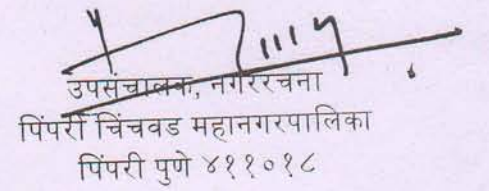 उपसंचालक, नगररचना
पिंपरी चिंचवड महानगरपालिका
पिंपरी पुणे ४११०१८